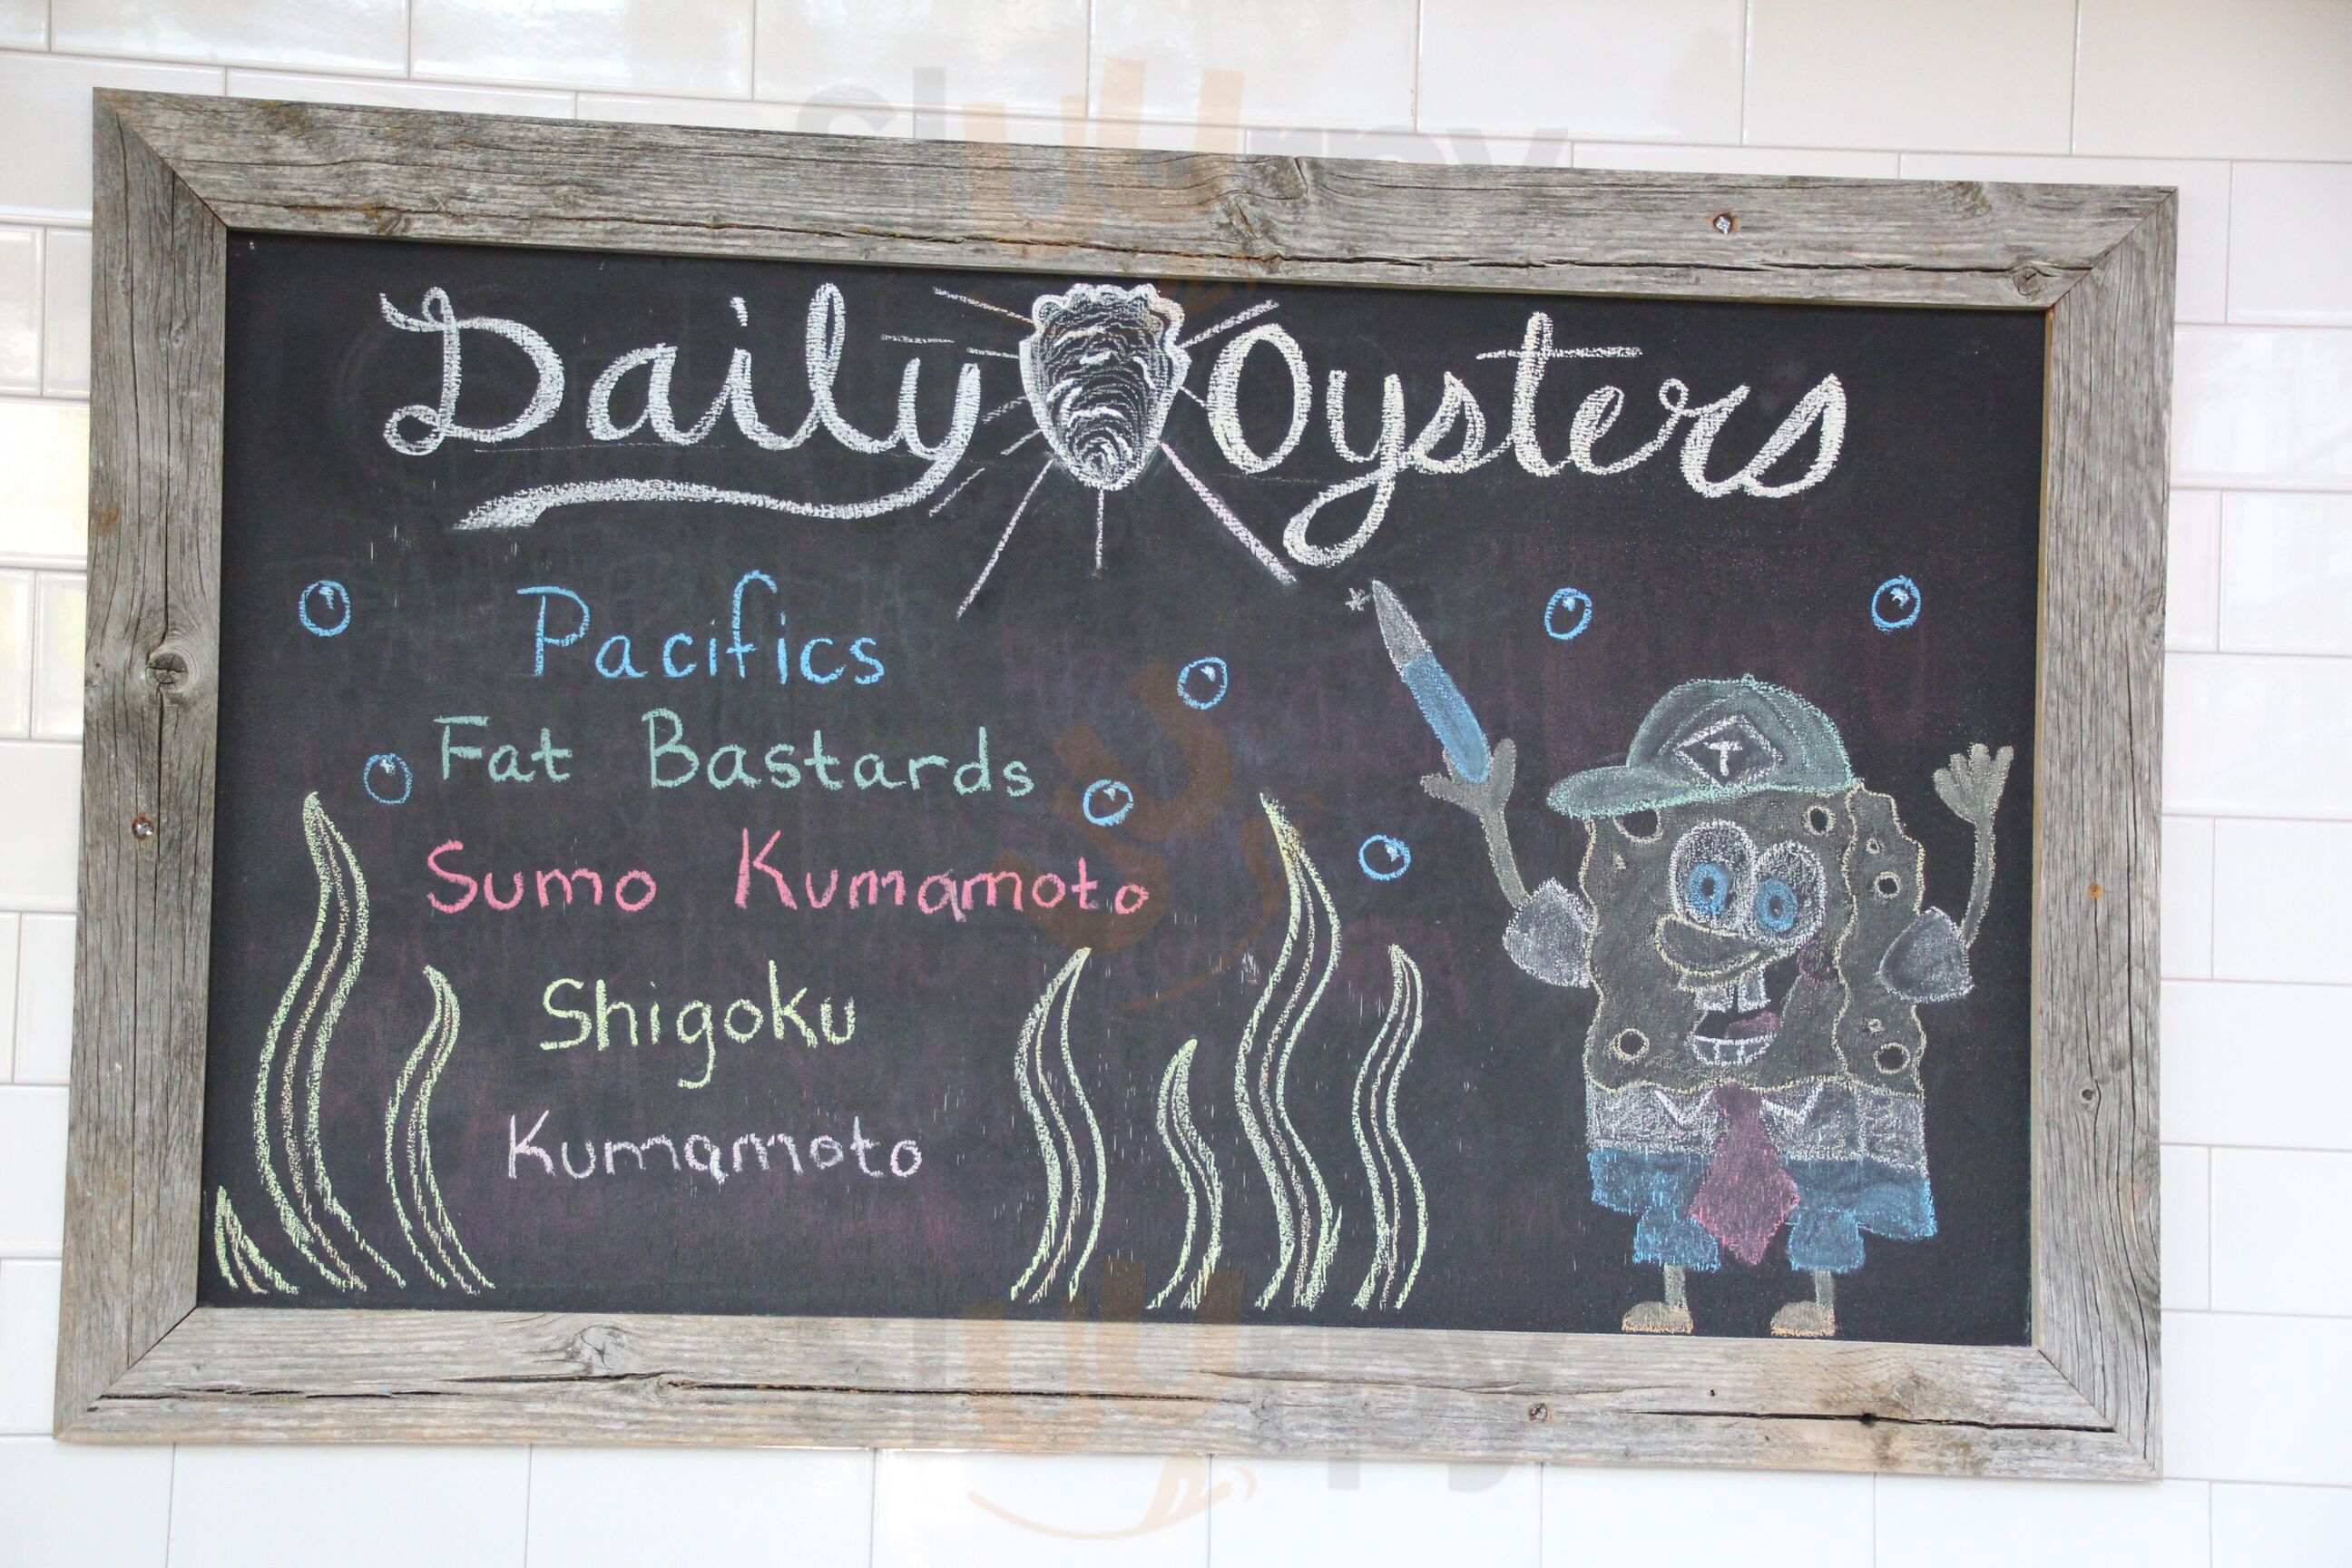 slurpy
Daily Oysters
Pacifics
Fat Bastards
Sumo Kumamoto
Shigoku
Kumamoto
T
slurpy